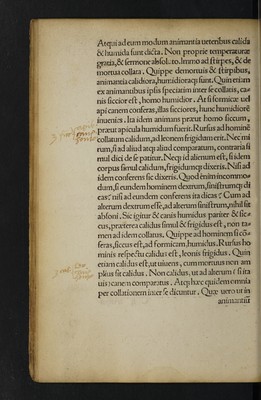 Atqui ad eum modum animantia urentibus calida
& humida sunt dicta. Non proprie temperaturæ
gratia, & sermone absoluto. Immo ad stirpes, & de
mortua collata. Quippe demortuis & stirpibus,
animantia calidiora, humidioraq; sunt. Quin etiam
ex animantibus ipsis speciatim inter se collatis, ca-
nis siccior est, homo humidior. At si formicæ vel
api canem conferas, illas sicciores, hunc humidiorē
inuenies. Ita idem animans præut homo siccum,
præut apicula humidum fuerit. Rursus ad hominē
collatum calidum, ad leonem frigidum erit. Nec mi
rum, si ad aliud atq; aliud comparatum, contraria si
mul dici de se patitur. Neq; id alienum est, si idem
corpus simul calidum, frigidumq; dixeris. Nisi ad
idem conferens sic dixeris. Quod enim incommo-
dum, si eundem hominem dextrum, sinistrumq; di
cas: nisi ad eundem conferens ita dicas? Cum ad
alterum dextrum esse, ad alterum sinistrum, nihil sit
absoni. Sic igitur & canis humidus pariter & sic-
cus, præterea calidus simul & frigidus est, non ta-
men ad idem collatus. Quippe ad hominem si cō-
feras, siccus est, ad formicam, humidus. Rursus ho
minis respectu calidus est, leonis frigidus. Quin
etiam calidus est, ut uiuens, cum mortuus non am
plius sit calidus. Non calidus, ut ad alterum si ita
uis canem comparatus. Atq; hæc quidem omnia
per collationem inter se dicuntur. Quæ uero ut in
animantiū